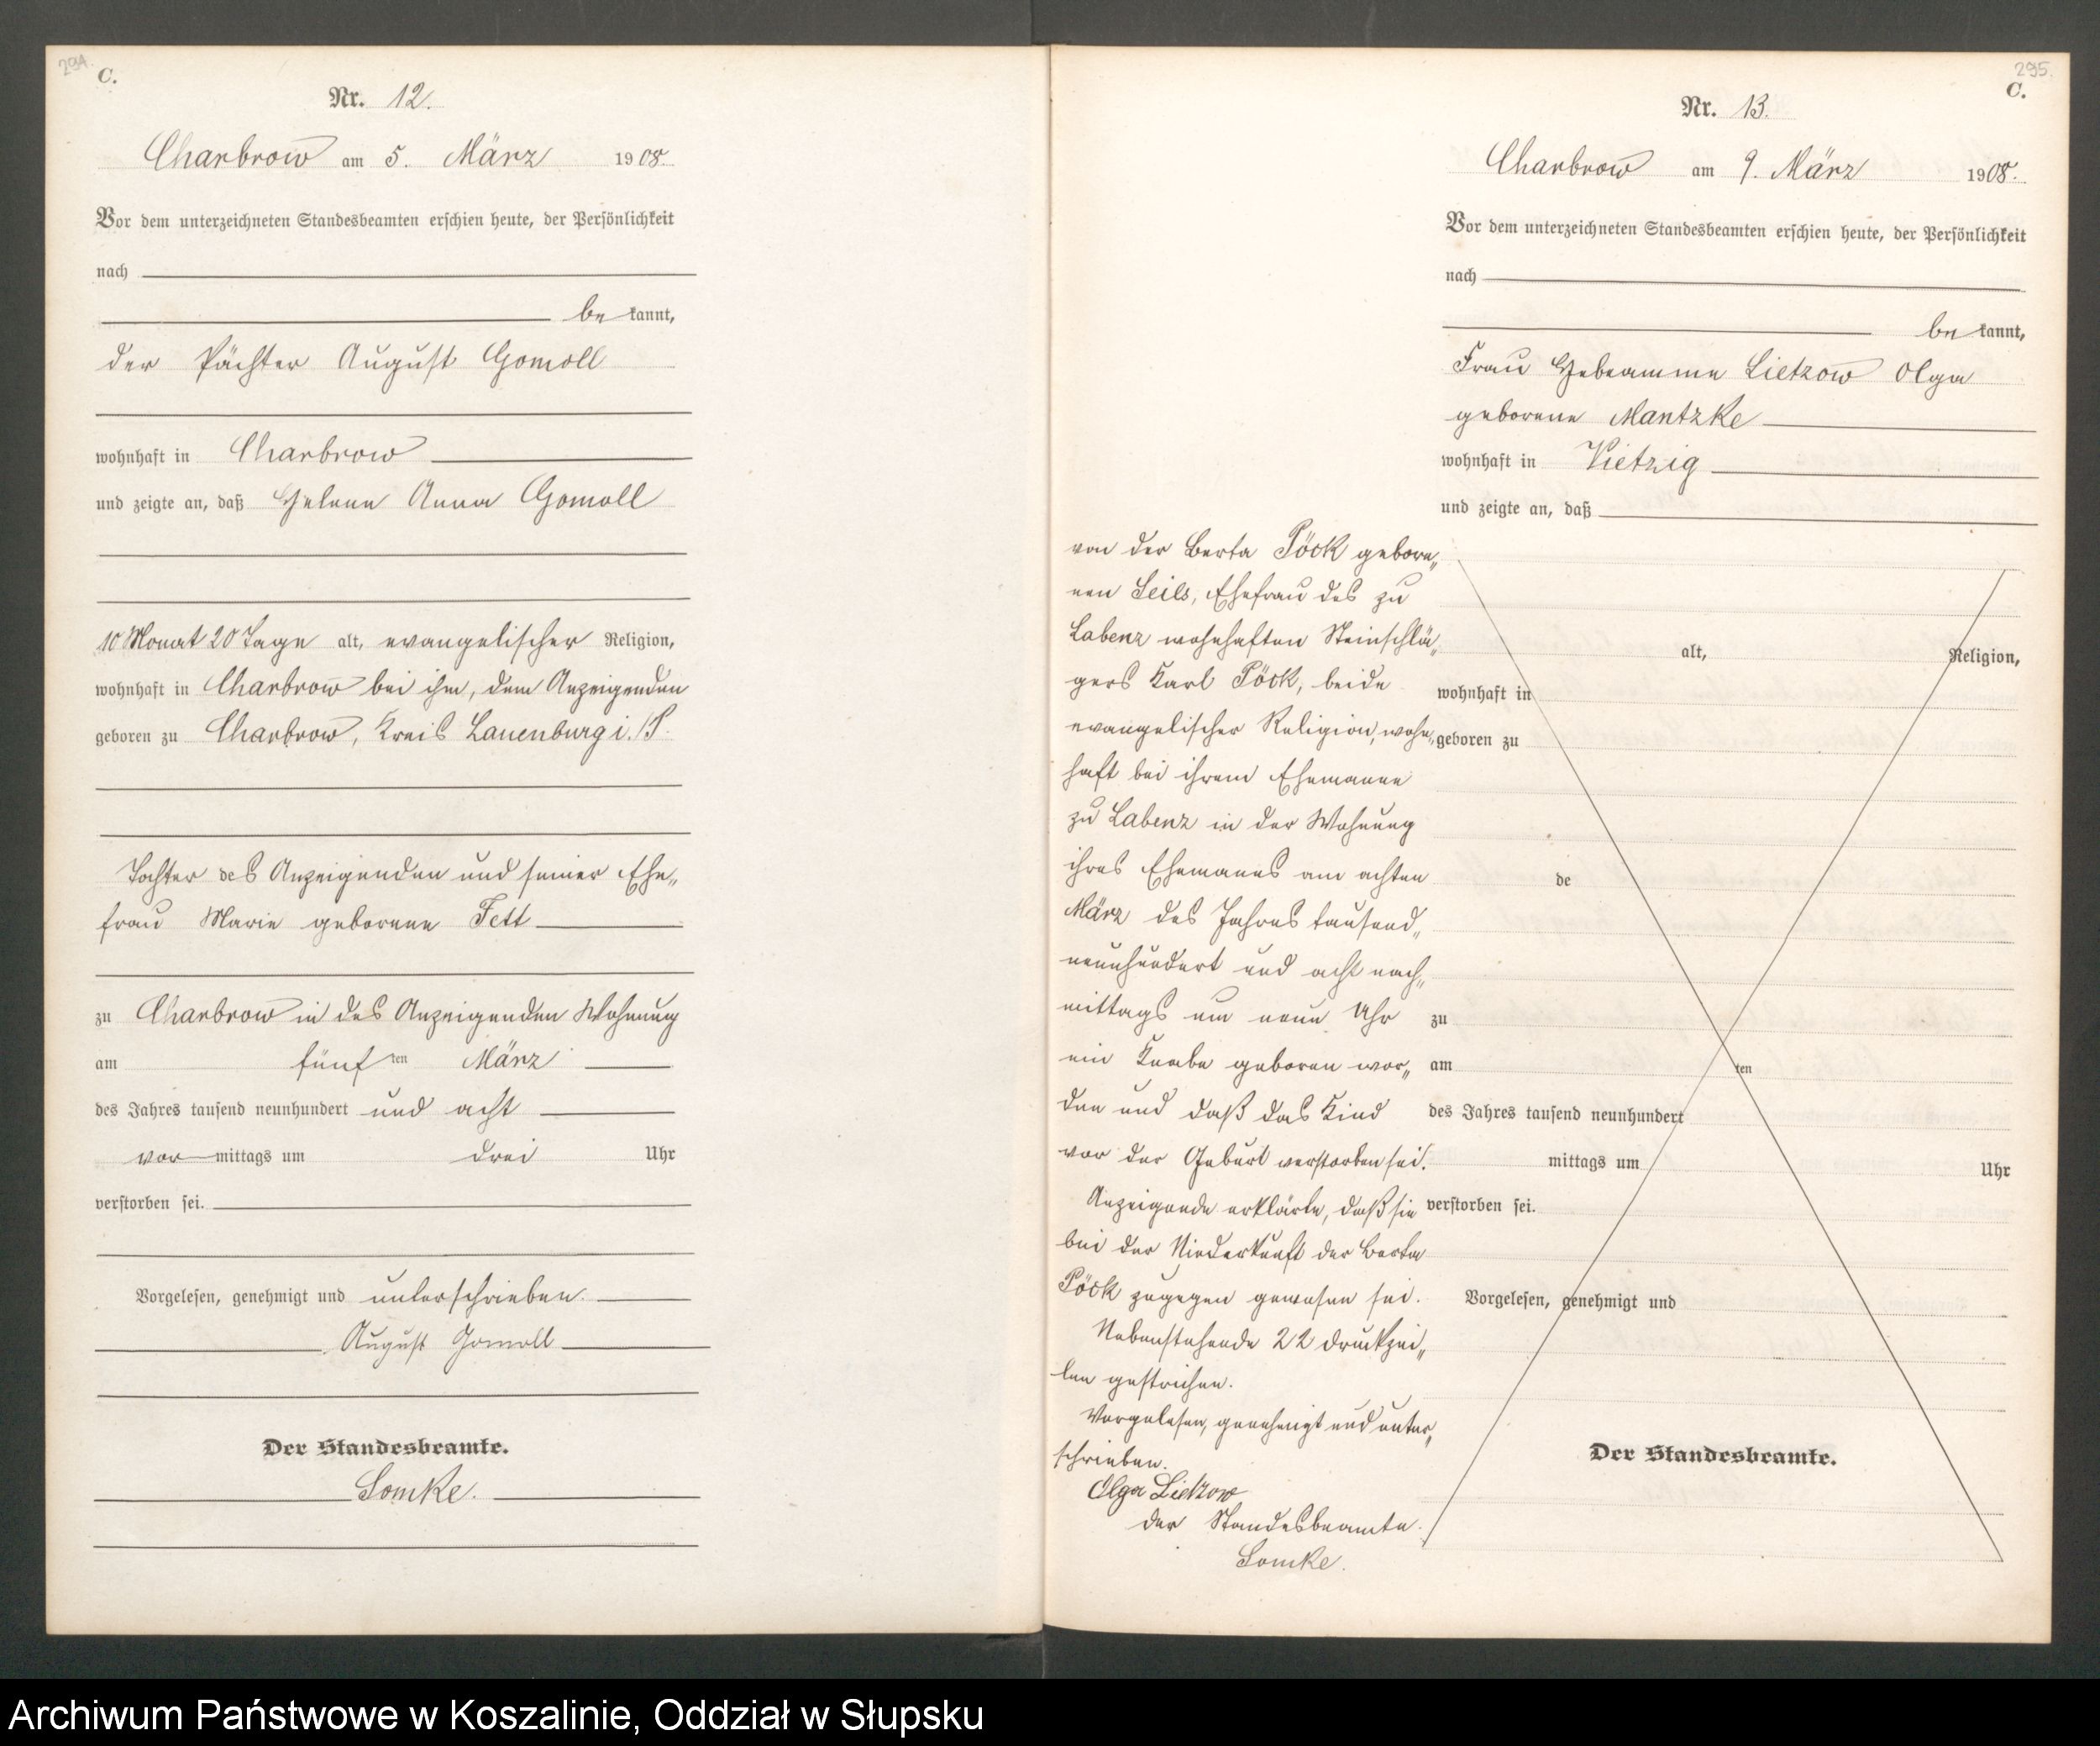 294.
C.
Nr. 12.
Charbrow am 5. März 1908.
Vor dem unterzeichneten Standesbeamten erschien heute, der Persönlichkeit
nach
bekannt,
der Pächter August Gomoll
wohnhaft in Charbrow
und zeigte an, daß Helene Anna Gomoll
10 Monat 20 Tage alt, evangelischer Religion,
wohnhaft in Charbrow bei ihm, dem Anzeigenden
geboren zu Charbrow, Kreis Lauenburg i./P.
Tochter des Anzeigenden und seiner Ehe„
frau Marie geborene Fett
zu Charbrow in des Anzeigenden Wohnung
am fünften März
des Jahres tausend neunhundert und acht
vormittags um drei Uhr
verstorben sei.
Vorgelesen, genehmigt und unterschrieben.
August Gomoll
Der Standesbeamte.
Lomke.
295.
C.
Nr. 13.
Charbrow am 9. März 1908.
Vor dem unterzeichneten Standesbeamten erschien heute, der Persönlichkeit
nach
bekannt,
Frau Hebeamme Lietzow Olga
geborene Mantzke
wohnhaft in Vietzig
und zeigte an, daß
von der Berta Pöck gebore„
nen Seils, Ehefrau des zu
Labenz wohnhaften Steinschlä„
gers Karl Pöck, beide
evangelischer Religion, wohn„
haft bei ihrem Ehemanne
zu Labenz in der Wohnung
ihres Ehemanns am achten
März des Jahres tausend„
neunhundert und acht nach„
mittags um neun Uhr
ein Knabe geboren wor„
den und daß das Kind
vor der Geburt verstorben sei.
Anzeigende erklärte, daß sie
bei der Niederkunft der Berta
Pöck zugegen gewesen sei.
Nebenstehende 22 Druckzei„
len gestrichen.
Vorgelesen, genehmigt und unter„
schrieben.
Olga Lietzow
der Standesbeamte.
Lomke.
alt, Religion,
wohnhaft in
geboren zu
de
zu
am ten
des Jahres tausend neunhundert
mittags um Uhr
verstorben sei.
Vorgelesen, genehmigt und
Der Standesbeamte.
Archiwum Państwowe w Koszalinie, Oddział w Słupsku